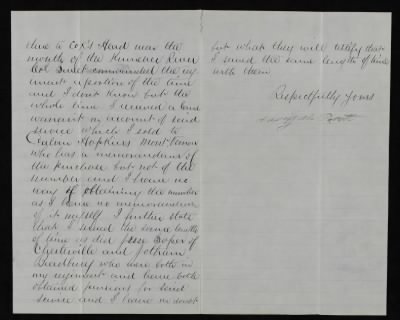 there a Cox's Head near the
mouth of the Kennebec River
Col Sweet commanded the reg
iment a portion of the time
and I don't know but the
whole time I received a land
warrant on account of said
service which I sold to
Calvin Hopkins Mont Vernon
who has a memorandum of
the purchase but not of the
number and I have no
way of obtaining the number
as I have no memorandum
of it myself I further state
that I served the same length
of time as did Jesse Soper of
Chesterville and Jotham
Bradbury who were both in
my regiment and have both
obtained pensions for said
service and I have no doubt
but what they will certify that
I served the same length of time
with them
Respectfully Yours